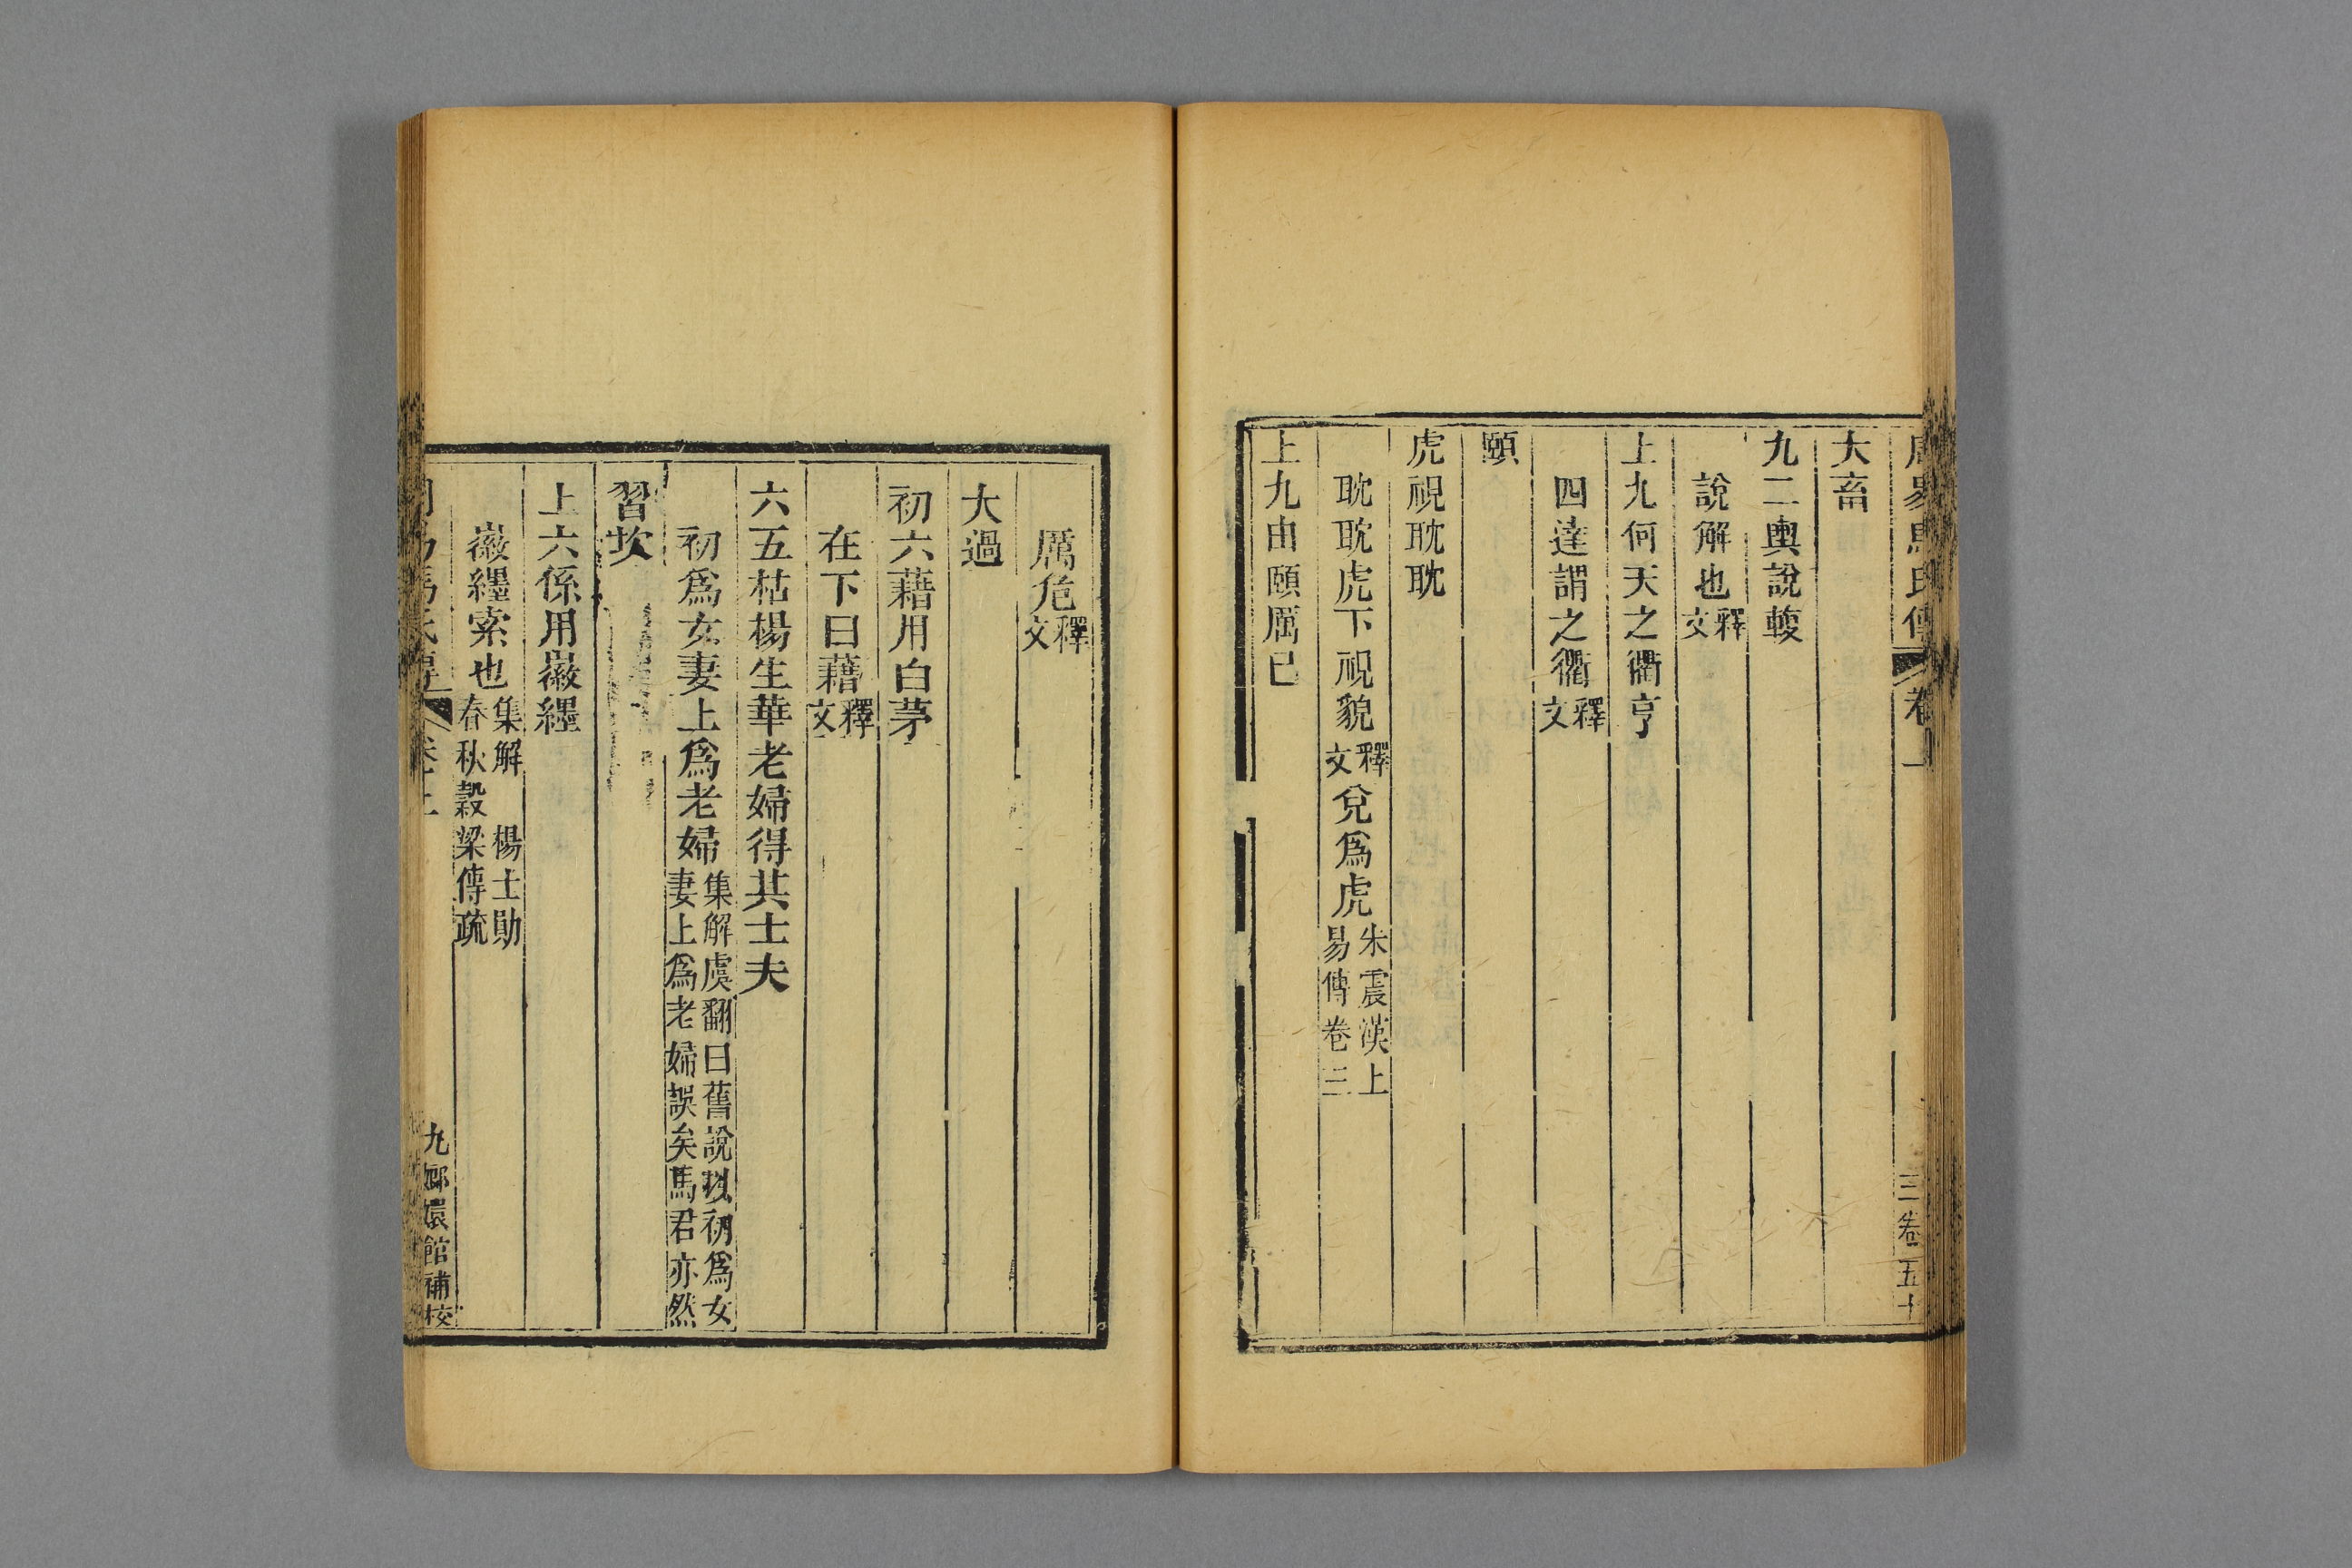 周易馬氏傳 卷上 三 卷五十
大畜
九二輿說輹
說解也釋文
上九何天之衢亨
四達謂之衢釋文
頤
虎視耽耽
耽耽虎下視貌釋文兌為虎朱震漢上易傳卷三
上九由頤厲已
厲危釋文
大過
初六藉用白茅
在下曰藉釋文
六五枯楊生華老婦得其士夫
初爲女妻上爲老婦集解虞翻曰舊說以初爲女妻上爲老婦誤矣馬君亦然
習坎
上六係用徽纆
徽纆索也集解 楊士勛春秋穀梁傳疏
九嫏嬛館補校